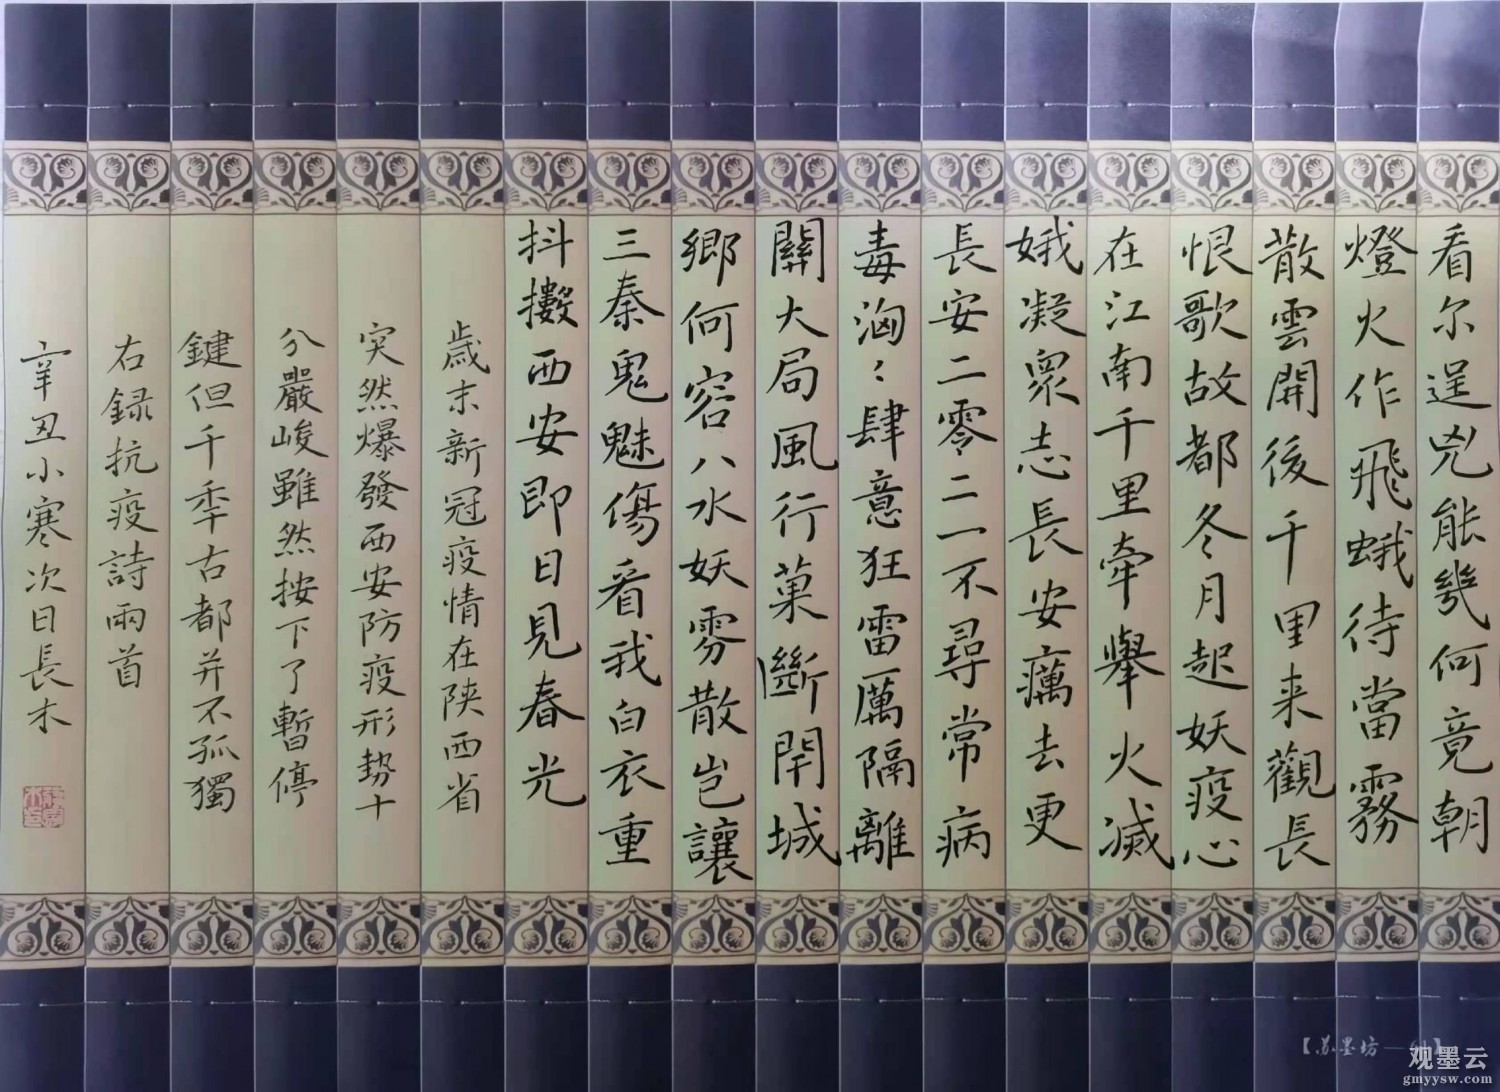 看尔逞兇能幾何竟朝
燈火作飛蛾待當霧
散雲開後千里来觀長
恨歌故都冬月起妖疫心
在江南千里牽舉火滅
娥凝衆志長安癘去更
長安二零二一不尋常病
毒洶〻肆意狂雷厲隔離
關大局風行菓斷閈城
鄉何容八水妖雰散岂讓
三秦鬼魅傷看我白衣重
抖擻西安即日見春光
歲末新冠疫情在陕西省
突然爆發西安防疫形勢十
分嚴峻雖然按下了暫停
鍵但千秊古都并不孤獨
右録抗疫詩兩首
辛丑小寒次日長木
【苏墨坊
观墨云
gmyysw.com